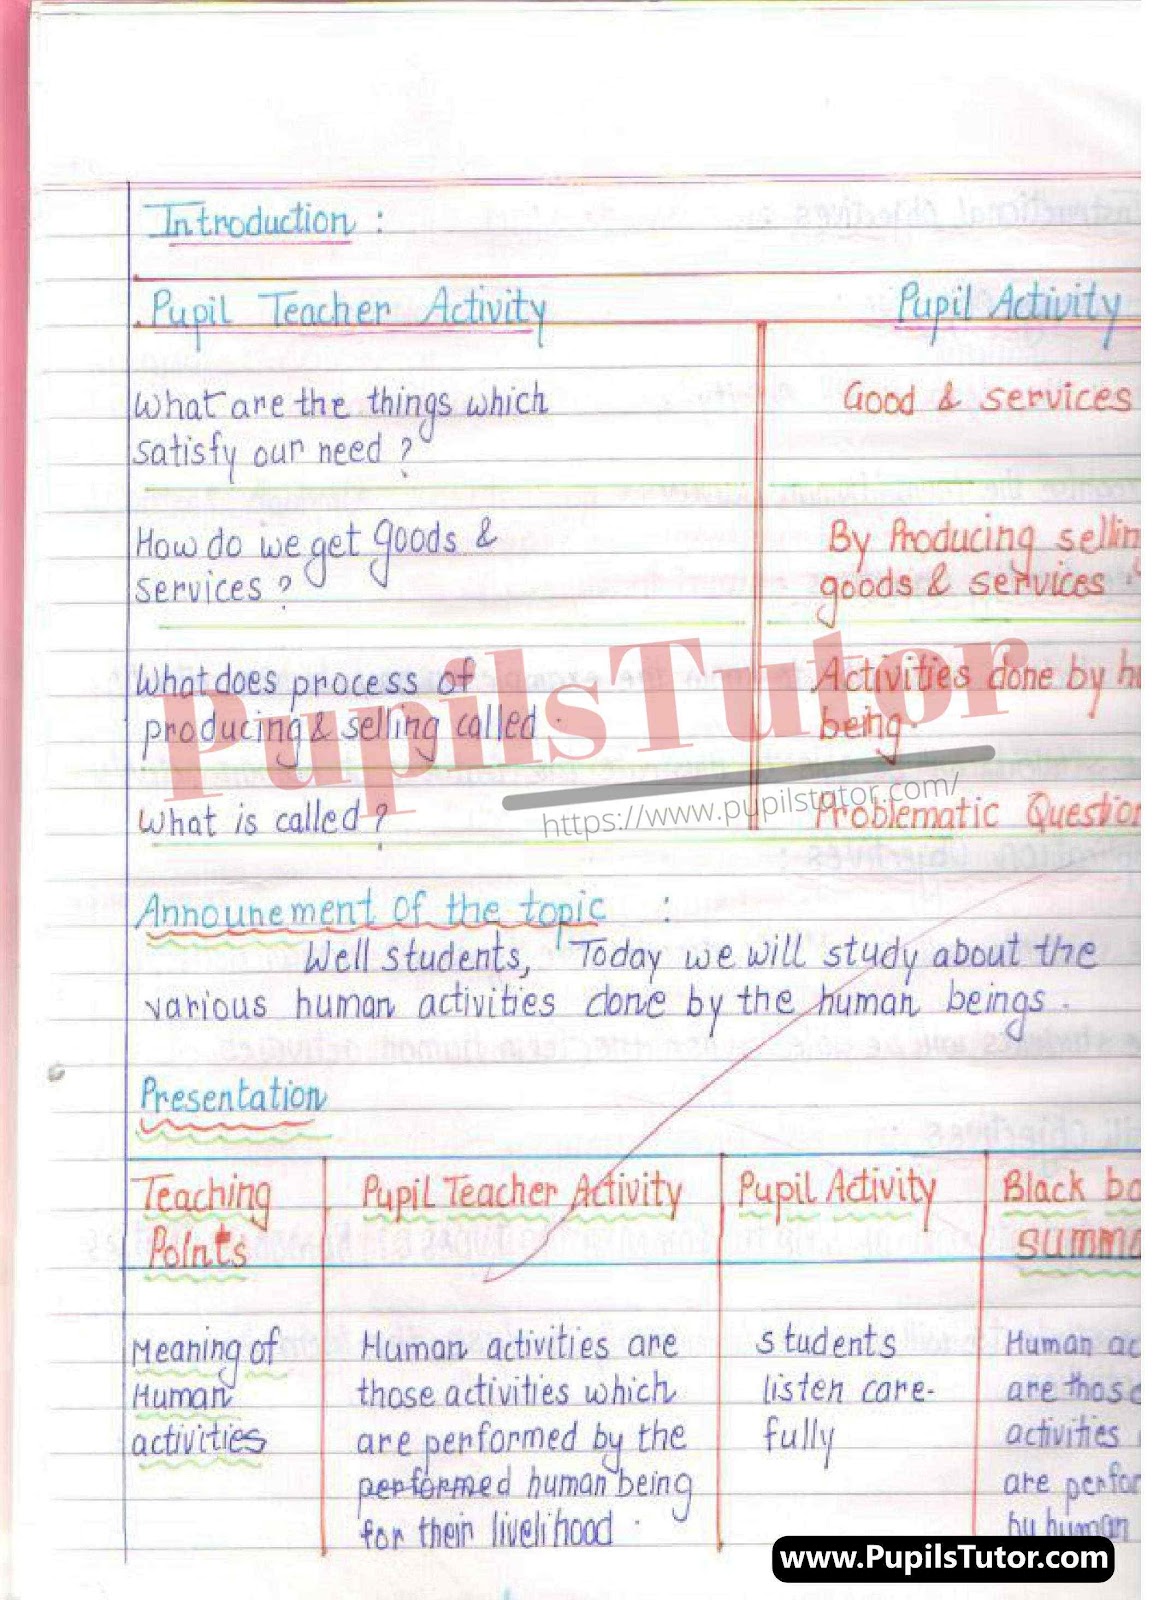 Introduction :
Pupil Teacher Activity Pupil Activity
What are the things which Good & services
satisfy our need ?
How do we get goods & By Producing sellin
services ? goods & services
What does process of Activities done by hu
producing & selling called. being.
What is called ? Problematic Question
PupilsTutor
https://www.pupilstutor.com/
Announement of the topic :
Well students, Today we will study about the
various human activities done by the human beings.
Presentation
Teaching Pupil Teacher Activity Pupil Activity Black bo
Points summa
Meaning of Human activities are students Human ac
Human those activities which listen care- are those
activities are performed by the fully activities
performed human being are perfor
for their livelihood. by human
www.PupilsTutor.com